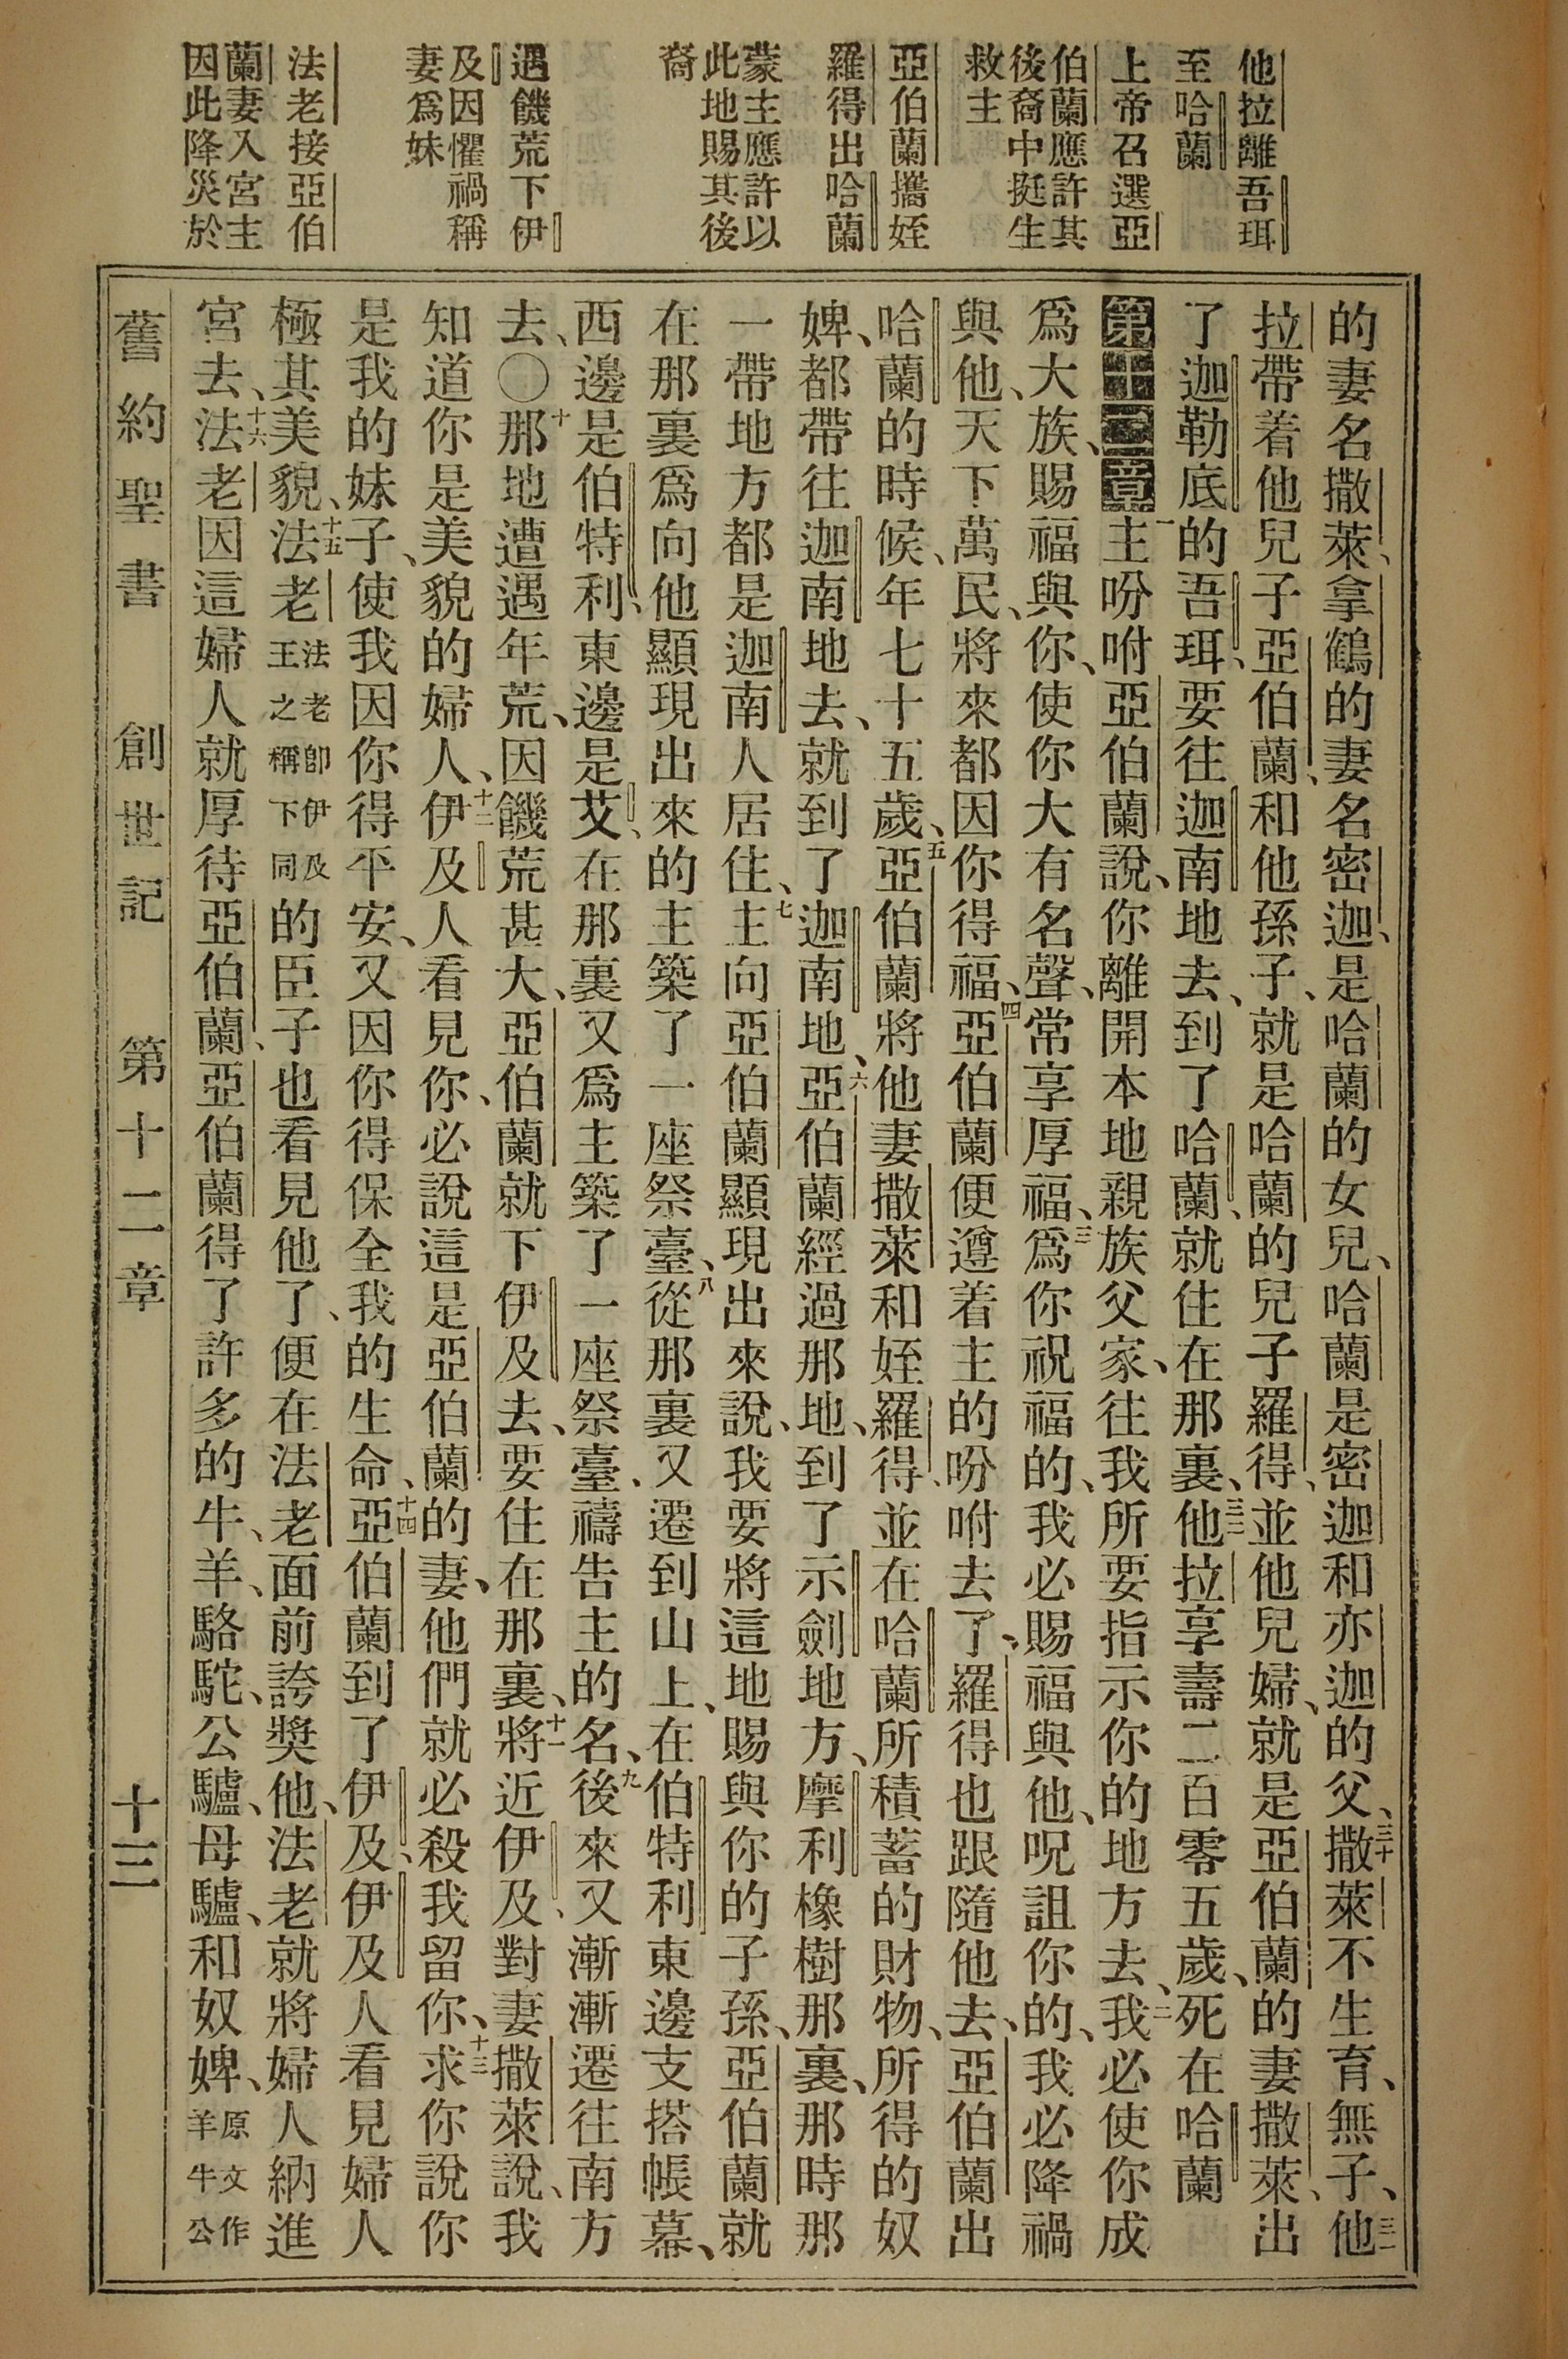 他拉離吾珥
至哈蘭
上帝召選亞
伯蘭應許其
後裔中挺生
救主
亞伯蘭攜姪
羅得出哈蘭
蒙主應許以
此地賜其後
裔
遇饑荒下伊
及因懼禍稱
妻爲妹
法老接亞伯
蘭妻入宮主
因此降災於
的妻名撒萊、拿鶴的妻名密迦、是哈蘭的女兒、哈蘭是密迦和亦迦的父、三十撒萊不生育、無子、三一他
拉帶着他兒子亞伯蘭、和他孫子、就是哈蘭的兒子羅得、並他兒婦、就是亞伯蘭的妻撒萊、出
了迦勒底的吾珥、要往迦南地去、到了哈蘭、就住在那裏、三二他拉享壽二百零五歲、死在哈蘭
第十二章一主吩咐亞伯蘭說、你離開本地親族父家、往我所要指示你的地方去、二我必使你成
爲大族、賜福與你、使你大有名聲、常享厚福、三爲你祝福的、我必賜福與他、呪詛你的、我必降禍
與他、天下萬民、將來都因你得福、四亞伯蘭便遵着主的吩咐去了、羅得也跟隨他去、亞伯蘭出
哈蘭的時候、年七十五歲、五亞伯蘭將他妻撒萊和姪羅得、並在哈蘭所積蓄的財物、所得的奴
婢、都帶往迦南地去、就到了迦南地、六亞伯蘭經過那地、到了示劍地方、摩利橡樹那裏、那時那
一帶地方都是迦南人居住、七主向亞伯蘭顯現出來說、我要將這地賜與你的子孫、亞伯蘭就
在那裏爲向他顯現出來的主築了一座祭臺、八從那裏又遷到山上、在伯特利東邊支搭帳幕、
西邊是伯特利、東邊是艾、在那裏又爲主築了一座祭臺、禱告主的名、九後來又漸漸遷往南方
去、〇十那地遭遇年荒、因饑荒甚大、亞伯蘭就下伊及去、要住在那裏、十一將近伊及、對妻撒萊說、我
知道你是美貌的婦人、十二伊及人看見你、必說這是亞伯蘭的妻、他們就必殺我留你、十三求你說你
是我的妹子、使我因你得平安、又因你得保全我的生命、十四亞伯蘭到了伊及、伊及人看見婦人
極其美貌、十五法老法老卽伊及王之稱下同的臣子也看見他了、便在法老面前誇獎他、法老就將婦人納進
宮去、十六法老因這婦人就厚待亞伯蘭、亞伯蘭得了許多的牛、羊、駱駝、公驢、母驢、和奴婢、原文作羊牛公
舊約聖書 創世記 第十二章 十三